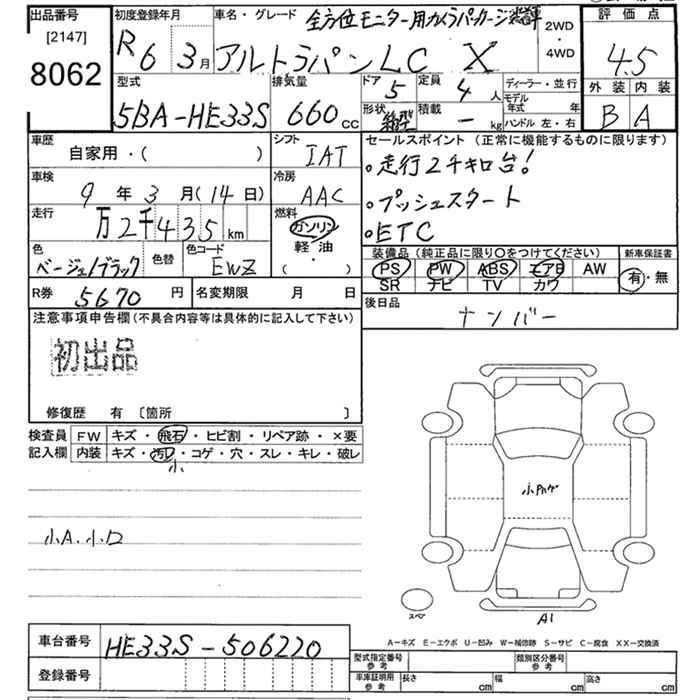 出品番号
[2147]
8062
初度登録年月
R6 3月
車名・グレード
全方位モニター用カメラパッケージ装着車
アルトラパンLC X
2WD
・
4WD
評価点
4.5
外装 内装
B A
型式
5BA-HE33S
排気量
660cc
ドア
5
定員
4人
形状
積載
-kg
ディーラー・並行
モデル年式 年
ハンドル 左・右
車歴
自家用・( )
シフト
IAT
車検
9年3月(14日)
冷房
AAC
走行
万2千435km
燃料
ガソリン
軽・油
・
( )
色
ベージュ/ブラック
色替
色コード
EWZ
R券 5670円
名変期限 月 日
セールスポイント(正常に機能するものに限ります)
・走行2千キロ台!
・プッシュスタート
・ETC
装備品(純正品に限り〇をつけてください)
新車保証書
PS PW ABS エアB AW
SR ナビ TV カワ
有・無
後日品
ナンバー
注意事項申告欄(不具合内容等は具体的に記入して下さい)
初出品
修復歴 有〔箇所 〕
検査員 FW キズ・飛石・ヒビ割・リペア跡・×要
記入欄 内装 キズ・汚レ・コゲ・穴・スレ・キレ・破レ
小
小A.小ロ
スペア
A1
A-キズ E-エクボ U-凹み W-補修跡 S-サビ C-腐食 XX-交換済
車台番号 HE33S-506220
登録番号
型式指定番号 参考
類別区分番号 参考
車庫証明用 参考
長さ cm
幅 cm
高さ cm